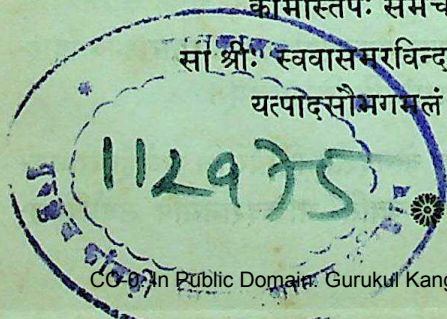 कामास्तपः समच
सा श्रीः स्ववासमरविन्द
यत्पादसौभगमलं
112975
CC-0. In Public Domain. Gurukul Kang